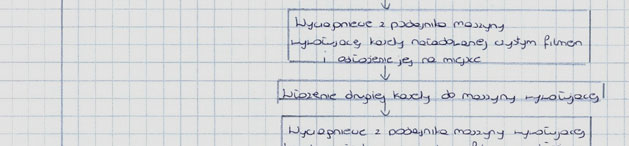 Wyciągnięcie z podajnika maszyny
wywołującej kasety naładowanej czystym filmem
i odłożenie jej na miejsce
Włożenie drugiej kasety do maszyny wywołującej
Wyciągnięcie z podajnika maszyny wywołującej